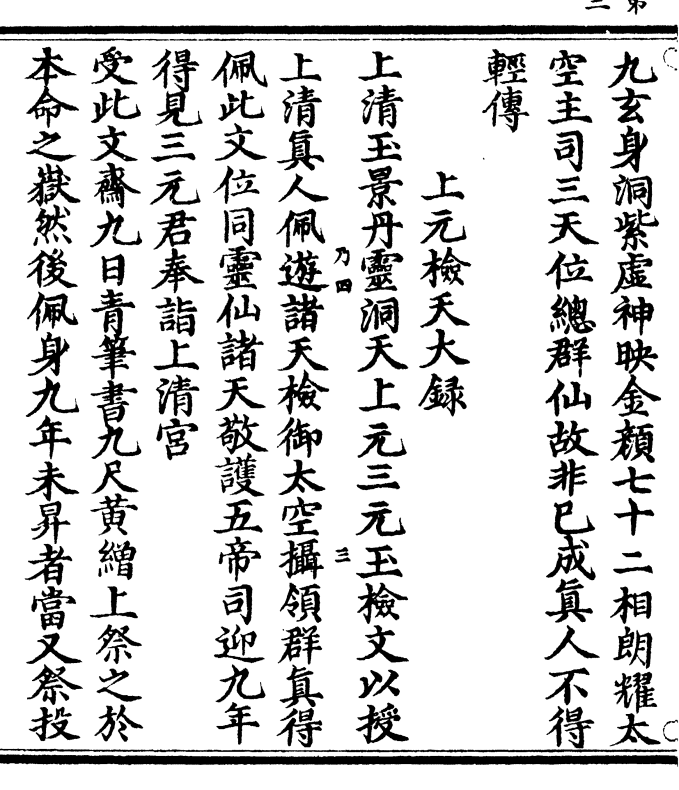 九玄身洞紫虛神映金顏七十二相朗耀太
空主司三天位總群仙故非已成眞人不得
輕傳
上元檢天大録
上清玉景丹靈洞天上元三元玉檢文以授
乃四
三
上清眞人佩遊諸天檢御太空攝領群眞得
佩此文位同靈仙諸天敬護五帝司迎九年
得見三元君奉詣上清宮
受此文齋九日青筆書九尺黃繒上祭之於
本命之嶽然後佩身九年未昇者當又祭投